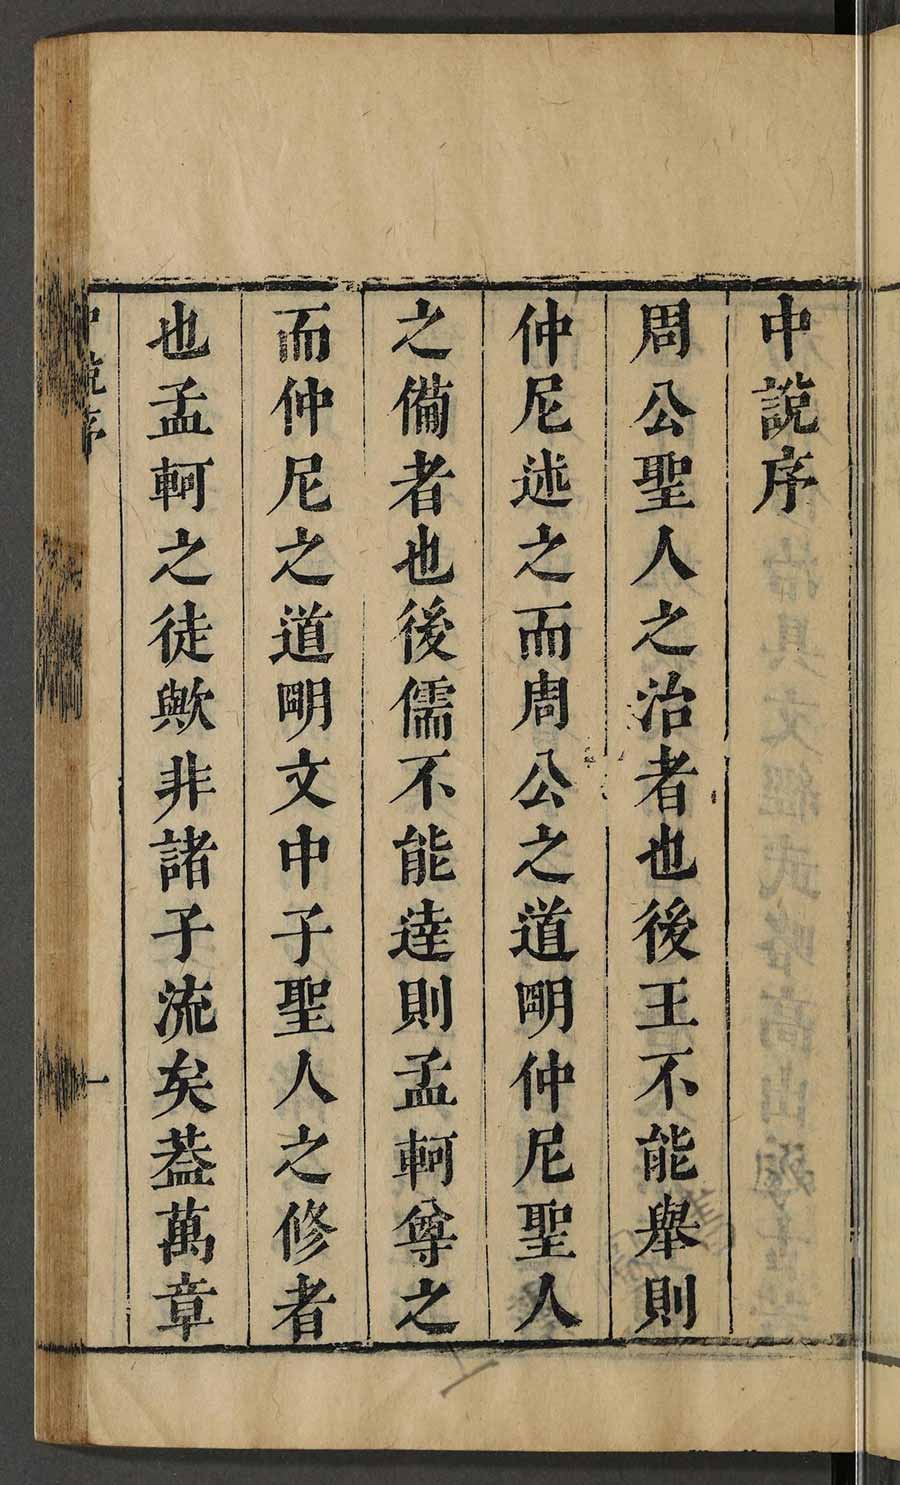 中說序
周公聖人之治者也後王不能舉則
仲尼述之而周公之道明仲尼聖人
之備者也後儒不能達則孟軻尊之
而仲尼之道明文中子聖人之修者
也孟軻之徒歟非諸子流矣葢萬章
中說序
一